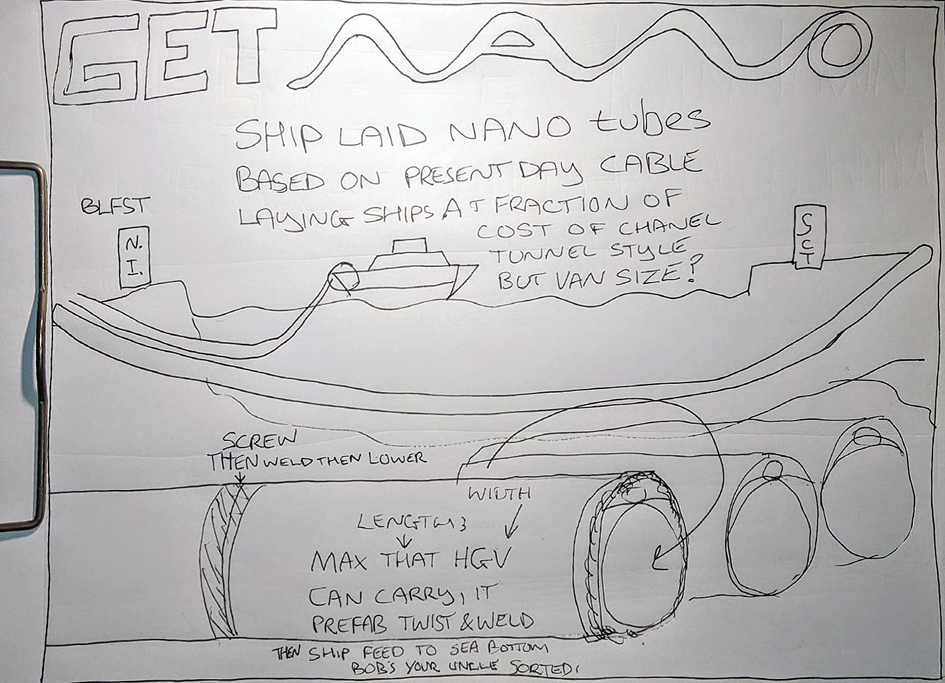 GET NANO
SHIP LAID NANO tubes
BASED ON PRESENT DAY CABLE
LAYING SHIPS AT FRACTION OF
COST OF CHANEL
TUNNEL STYLE
BUT VAN SIZE?
BLFST
N.
I.
SCT
SCREW
THEN WELD THEN LOWER
WIDTH
LENGTH
MAX THAT HGV
CAN CARRY, IT
PREFAB TWIST & WELD
THEN SHIP FEED TO SEA BOTTOM
BOB'S YOUR UNCLE SORTED!